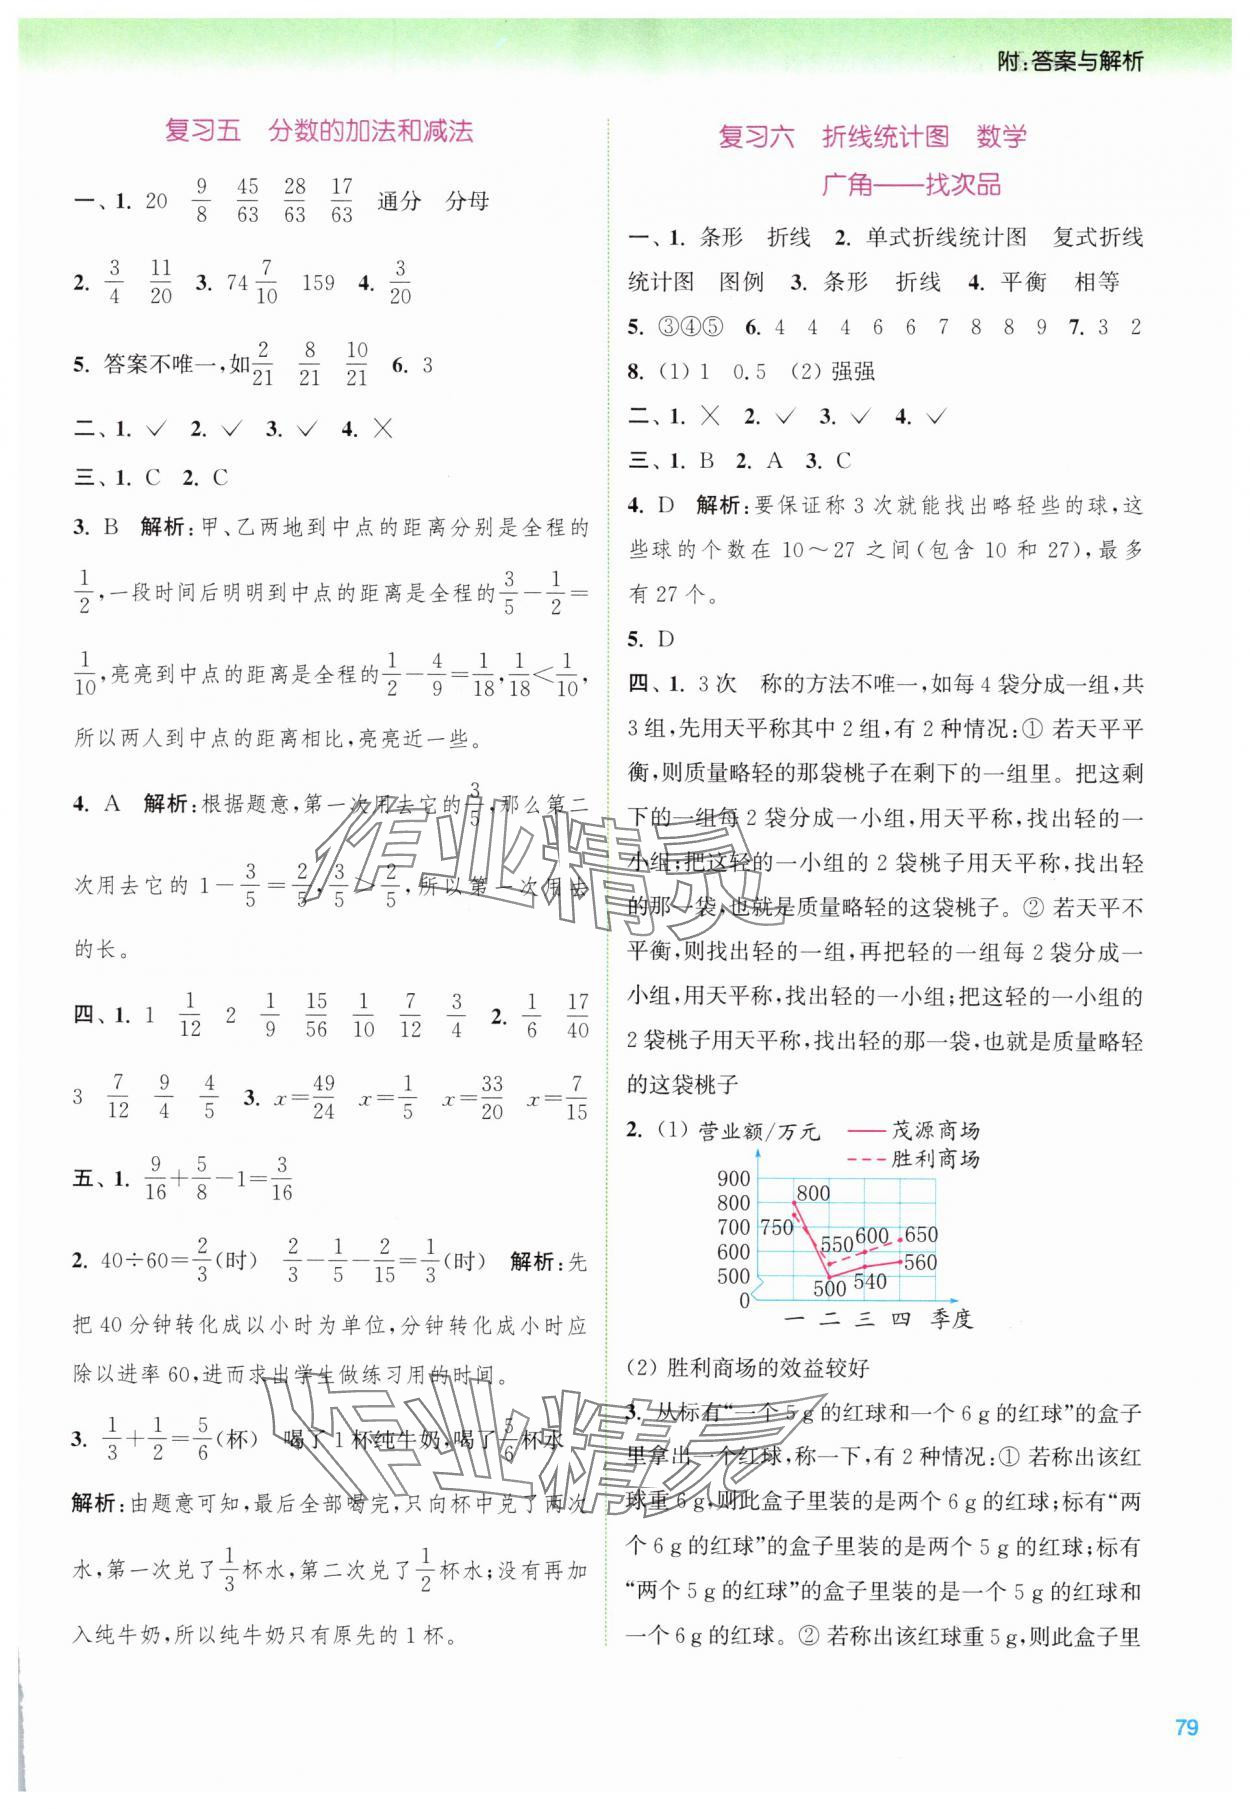 附:答案与解析
复习五 分数的加法和减法
一、1. 20 9/8 45/63 28/63 17/63 通分 分母
2. 3/4 11/20 3. 74 7/10 159 4. 3/20
5. 答案不唯一,如2/21 8/21 10/21 6. 3
二、1. ✓ 2. ✓ 3. ✓ 4. ×
三、1. C 2. C
3. B 解析:甲、乙两地到中点的距离分别是全程的
1/2,一段时间后明明到中点的距离是全程的3/5-1/2=
1/10,亮亮到中点的距离是全程的1/2-4/9=1/18,1/18<1/10,
所以两人到中点的距离相比,亮亮近一些。
4. A 解析:根据题意,第一次用去它的3/5,那么第二
次用去它的1-3/5=2/5,3/5>2/5,所以第一次用去
的长。
四、1. 1 1/12 2 1/9 15/56 1/10 7/12 3/4 2. 1/6 17/40
3 7/12 9/4 4/5 3. x=49/24 x=1/5 x=33/20 x=7/15
五、1. 9/16+5/8-1=3/16
2. 40÷60=2/3(时) 2/3-1/5-2/15=1/3(时) 解析:先
把40分钟转化成以小时为单位,分钟转化成小时应
除以进率60,进而求出学生做练习用的时间。
3. 1/3+1/2=5/6(杯) 喝了1杯纯牛奶,喝了5/6杯水
解析:由题意可知,最后全部喝完,只向杯中兑了两次
水,第一次兑了1/3杯水,第二次兑了1/2杯水;没有再加
入纯牛奶,所以纯牛奶只有原先的1杯。
复习六 折线统计图 数学
广角——找次品
一、1. 条形 折线 2. 单式折线统计图 复式折线
统计图 图例 3. 条形 折线 4. 平衡 相等
5. ③④⑤ 6. 4 4 4 6 6 7 8 8 9 7. 3 2
8. (1) 1 0.5 (2) 强强
二、1. × 2. ✓ 3. ✓ 4. ✓
三、1. B 2. A 3. C
4. D 解析:要保证称3次就能找出略轻些的球,这
些球的个数在10～27之间(包含10和27),最多
有27个。
5. D
四、1. 3次 称的方法不唯一,如每4袋分成一组,共
3组,先用天平称其中2组,有2种情况:① 若天平平
衡,则质量略轻的那袋桃子在剩下的一组里。把这剩
下的一组每2袋分成一小组,用天平称,找出轻的一
小组;把这轻的一小组的2袋桃子用天平称,找出轻
的那一袋,也就是质量略轻的这袋桃子。② 若天平不
平衡,则找出轻的一组,再把轻的一组每2袋分成一
小组,用天平称,找出轻的一小组;把轻的一小组的
2袋桃子用天平称,找出轻的那一袋,也就是质量略轻
的这袋桃子
2. (1) 营业额/万元 茂源商场
胜利商场
900
800 800
700 750 550 600 650
600
500 500 540 560
0
一 二 三 四 季度
(2) 胜利商场的效益较好
3. 从标有“一个5g的红球和一个6g的红球”的盒子
里拿出一个红球,称一下,有2种情况:① 若称出该红
球重6g,则此盒子里装的是两个6g的红球;标有“两
个6g的红球”的盒子里装的是两个5g的红球;标有
“两个5g的红球”的盒子里装的是一个5g的红球和
一个6g的红球。② 若称出该红球重5g,则此盒子里
79
作业精灵
作业精灵